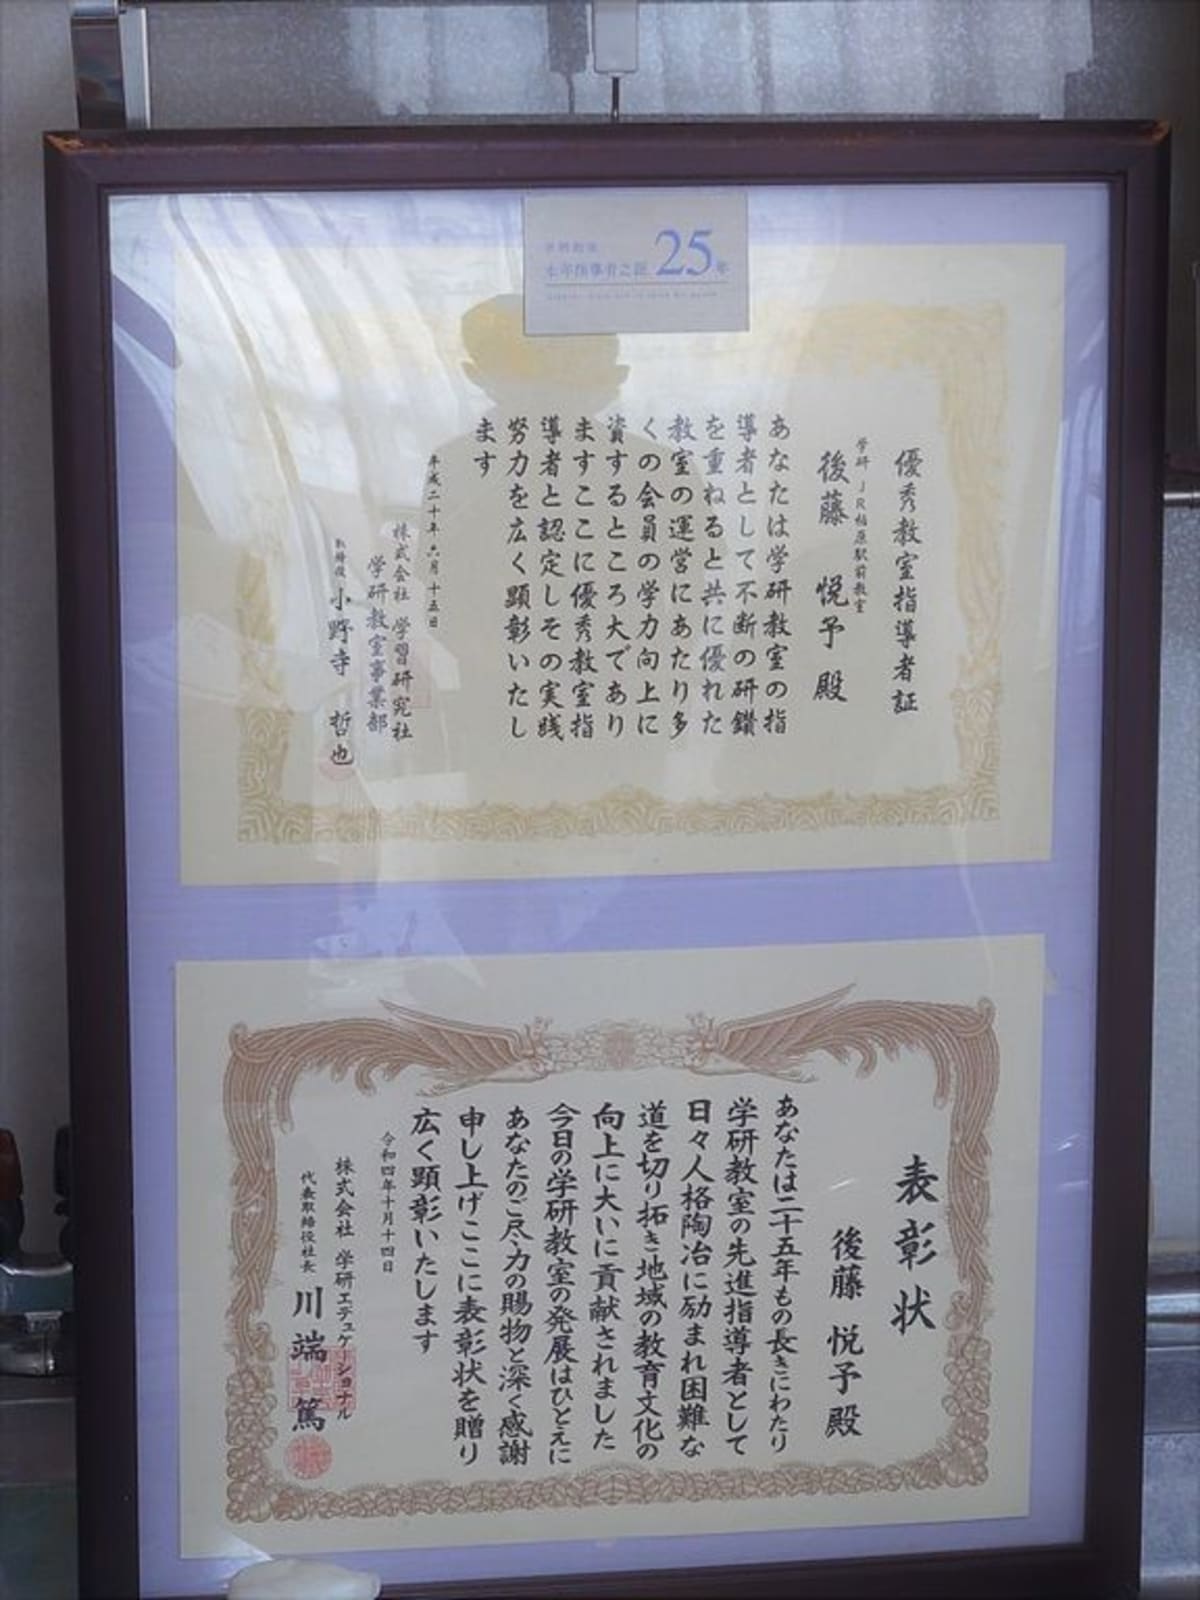 25年
優秀教室指導者証
学研 JR柏原駅前教室
後藤 悦予 殿
あなたは学研教室の指
導者として不断の研鑚
を重ねると共に優れた
教室の運営にあたり多
くの会員の学力向上に
資するところ大であり
ますここに優秀教室指
導者と認定しその実践
努力を広く顕彰いたし
ます
平成二十年 六月 十五日
株式会社 学習研究社
学研教室事業部
取締役 小野寺 哲也
表彰状
後藤 悦予 殿
あなたは二十五年もの長きにわたり
学研教室の先進指導者として
日々人格陶冶に励まれ困難な
道を切り拓き地域の教育文化の
向上に大いに貢献されました
今日の学研教室の発展はひとえに
あなたのご尽力の賜物と深く感謝
申し上げここに表彰状を贈り
広く顕彰いたします
令和四年十月十四日
株式会社 学研エデュケーショナル
代表取締役社長 川端 篤